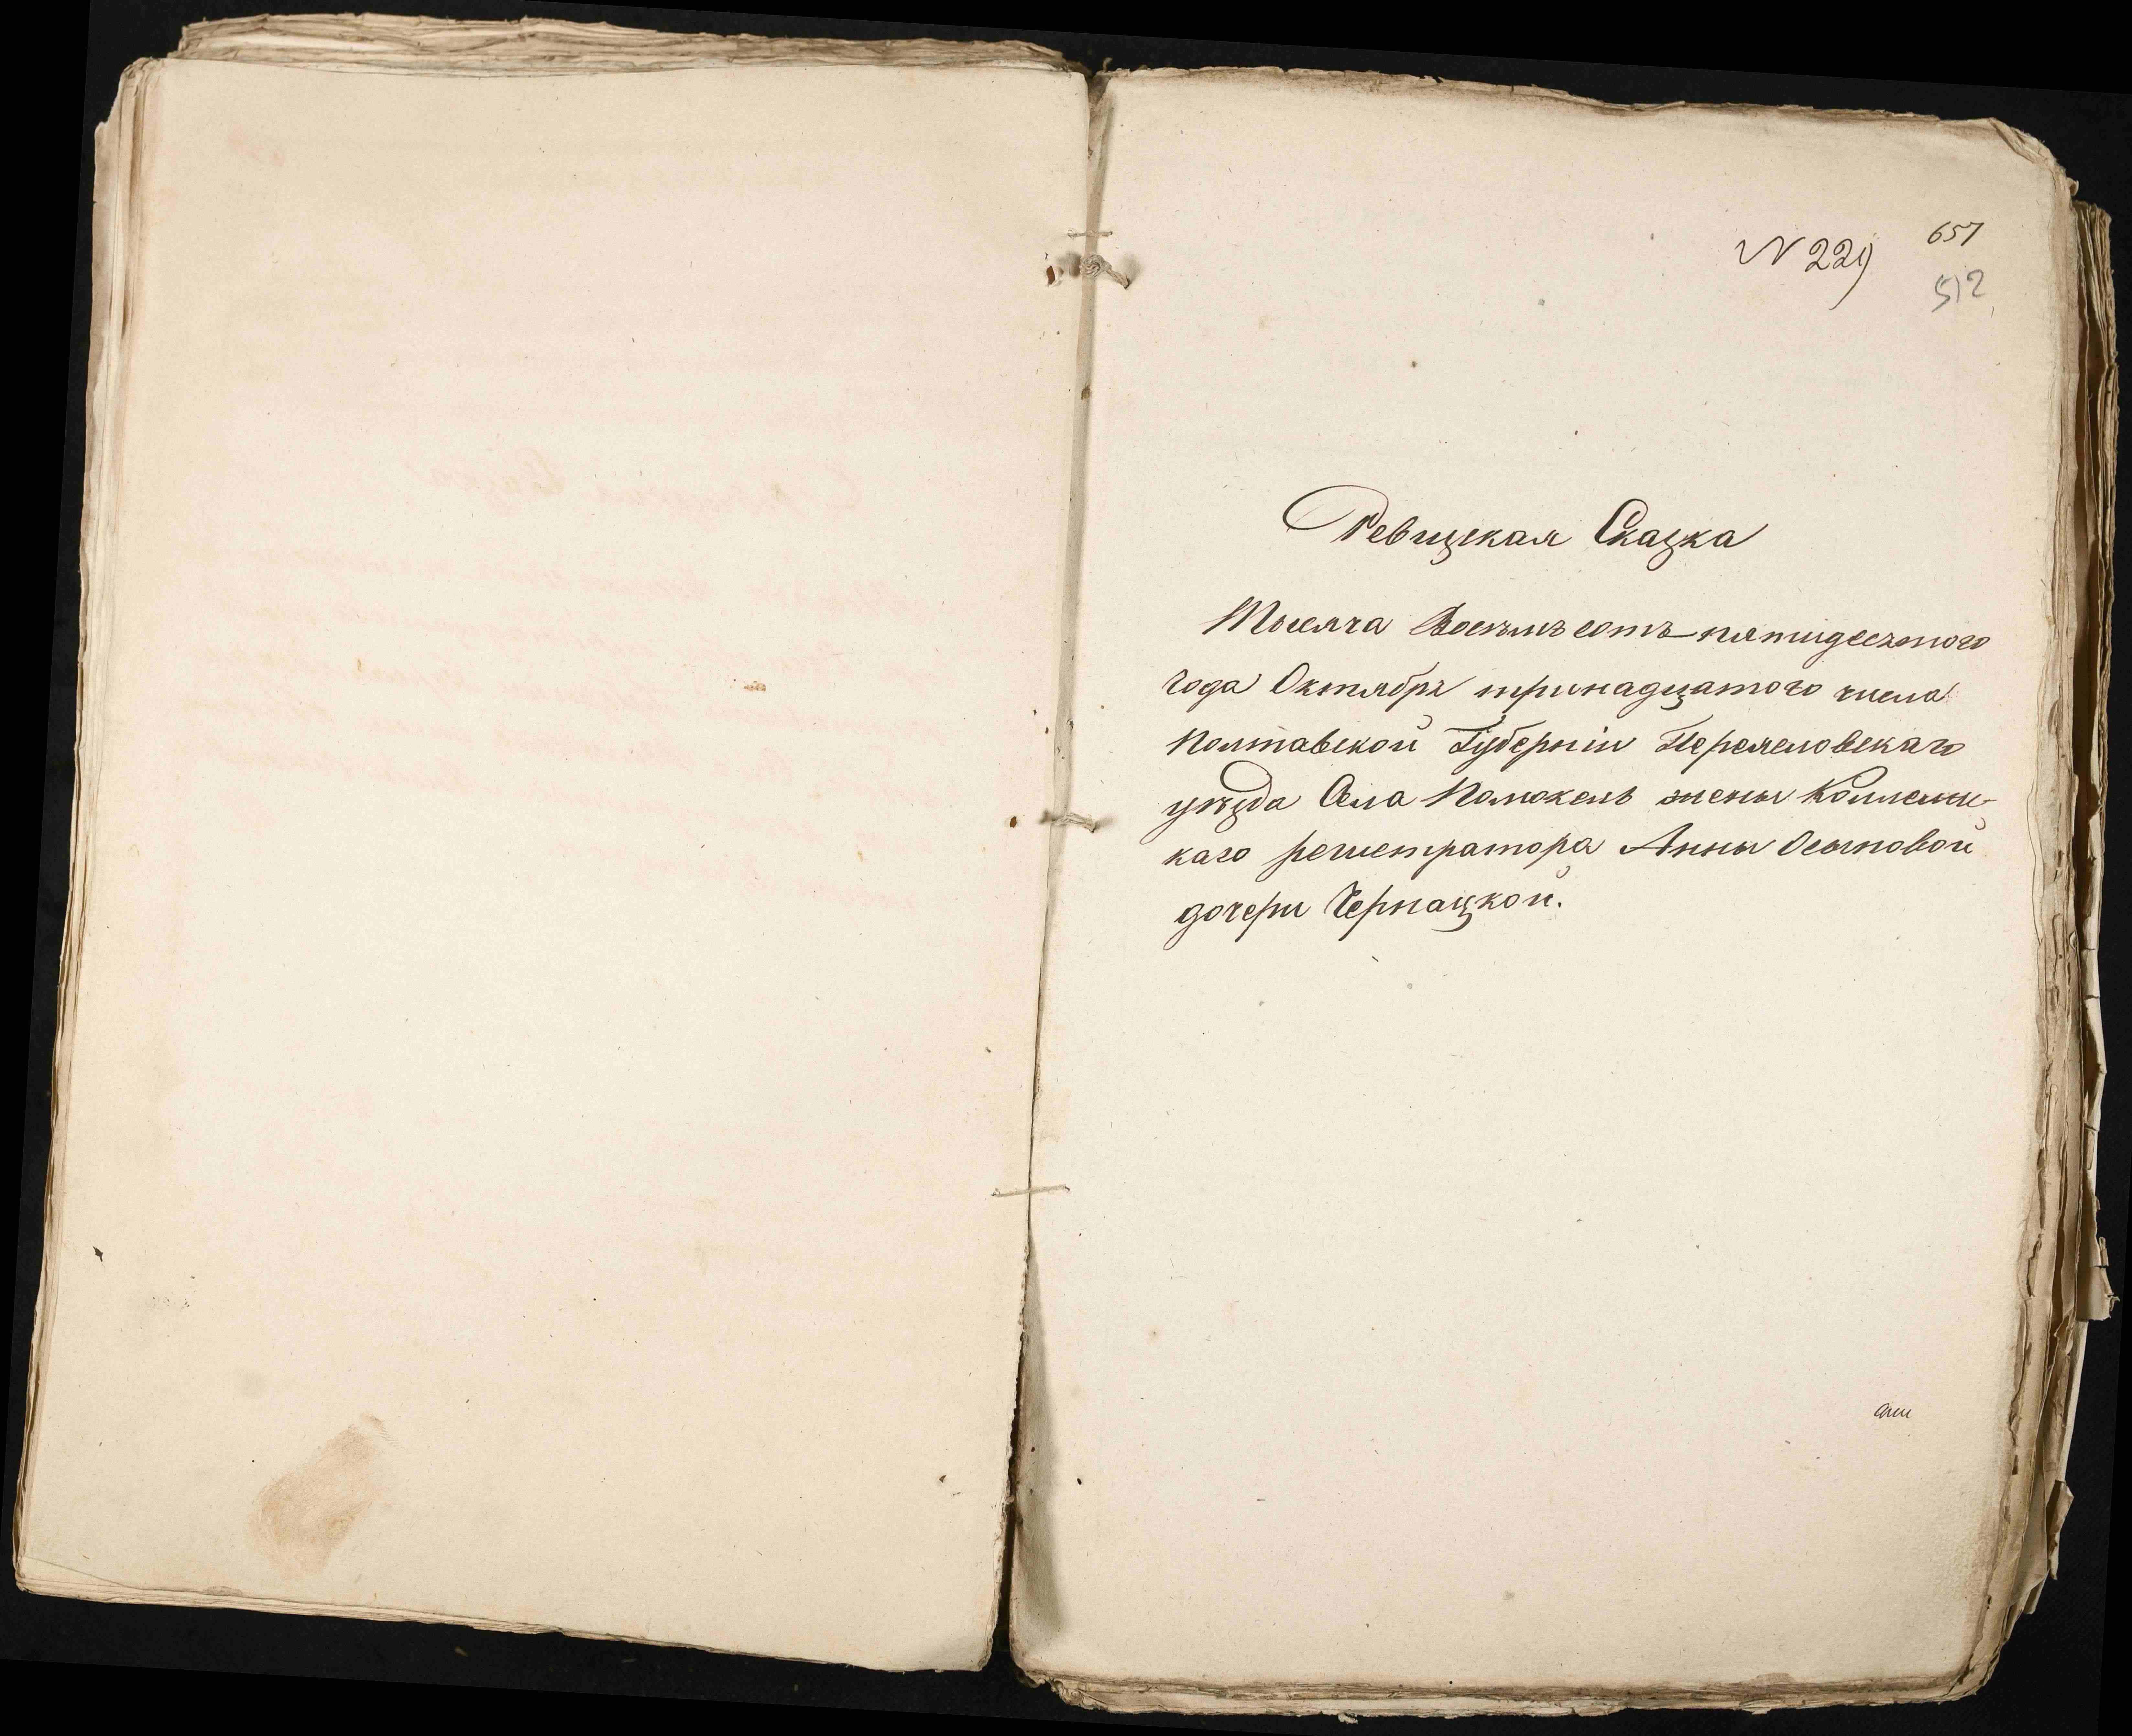 N 229
657
512
Ревизская Сказка
Тысяча Восемъ сотъ пятидесятого
Года Октября тринадцатого числа
Полтавской Губерніи Переясловскаго
уѣзда Села Помоклъ жены Коллежс-
каго регистратора Анны Осиповой
дочери Чернацкой.